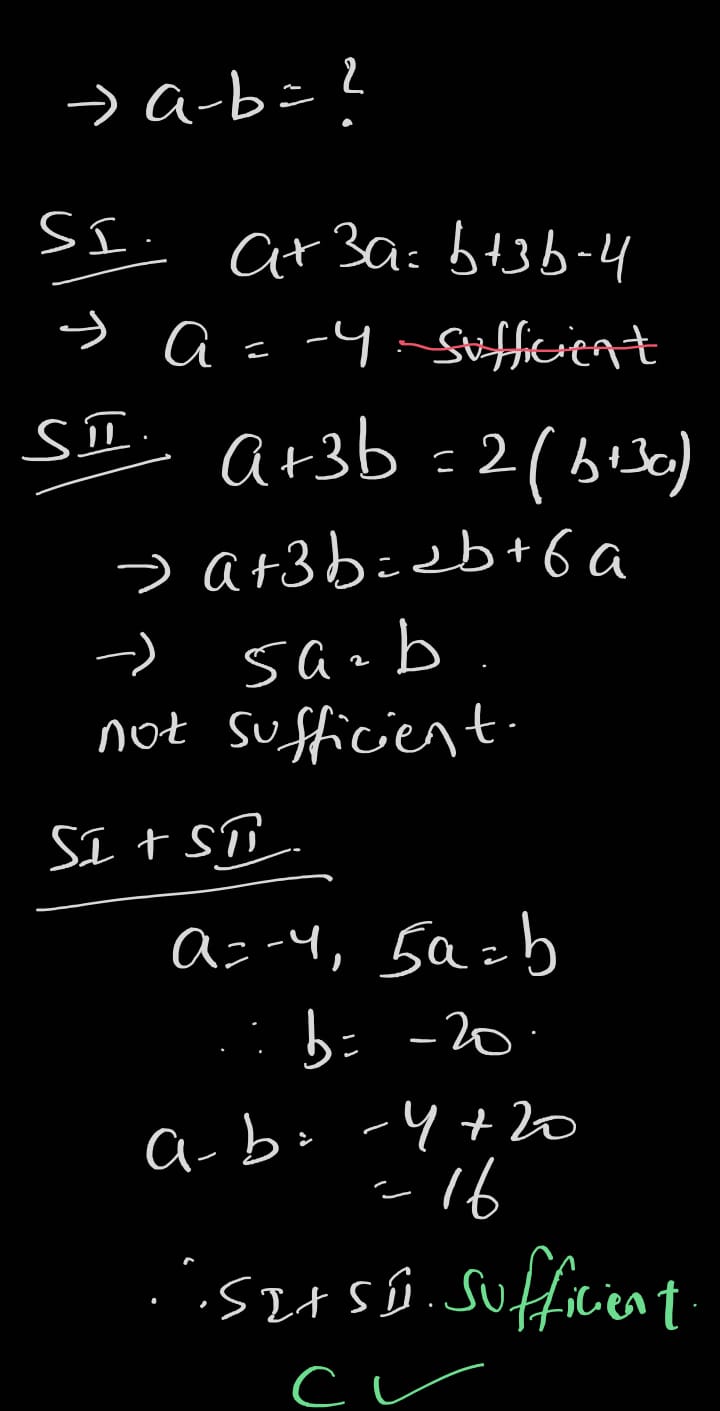 → a-b = ?
SI. a+3a = b+3b-4
→ a = -4. sufficient
SII. a+3b = 2(b+3a)
→ a+3b = 2b+6a
→ 5a = b.
not sufficient.
SI + SII.
a = -4, 5a = b
∴ b = -20.
a-b = -4+20
= 16
∴ SI+SII. sufficient.
C ✓